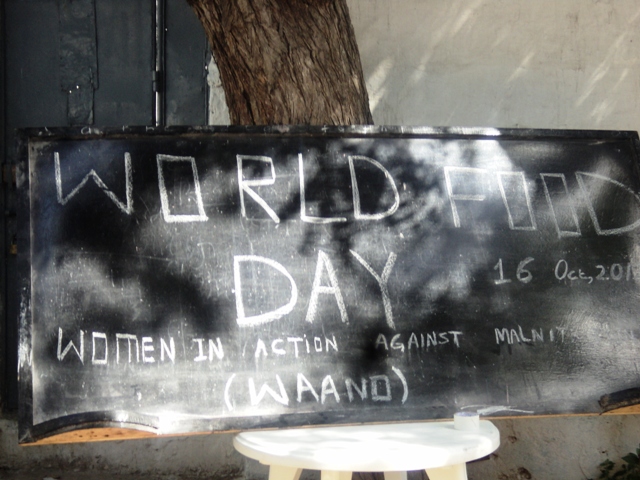 WORLD FOOD
DAY
16 Oct, 201
WOMEN IN ACTION AGAINST
(WAANO)